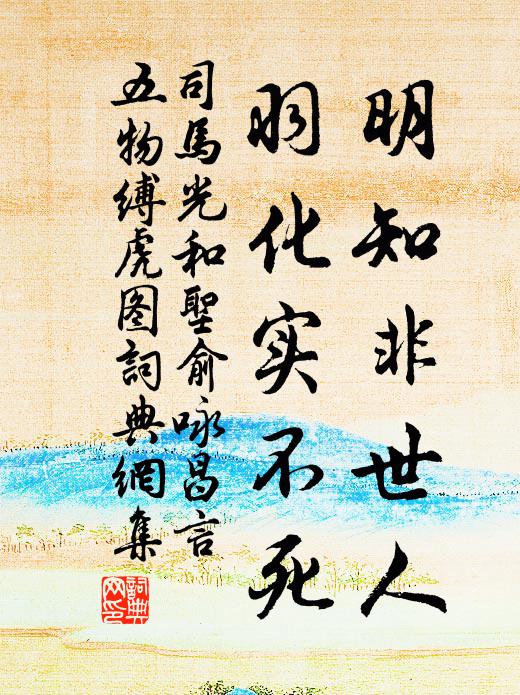 明知非世人
羽化实不死
司馬光和聖俞咏昌言
五物缚虎图詞典網集
詞典网印